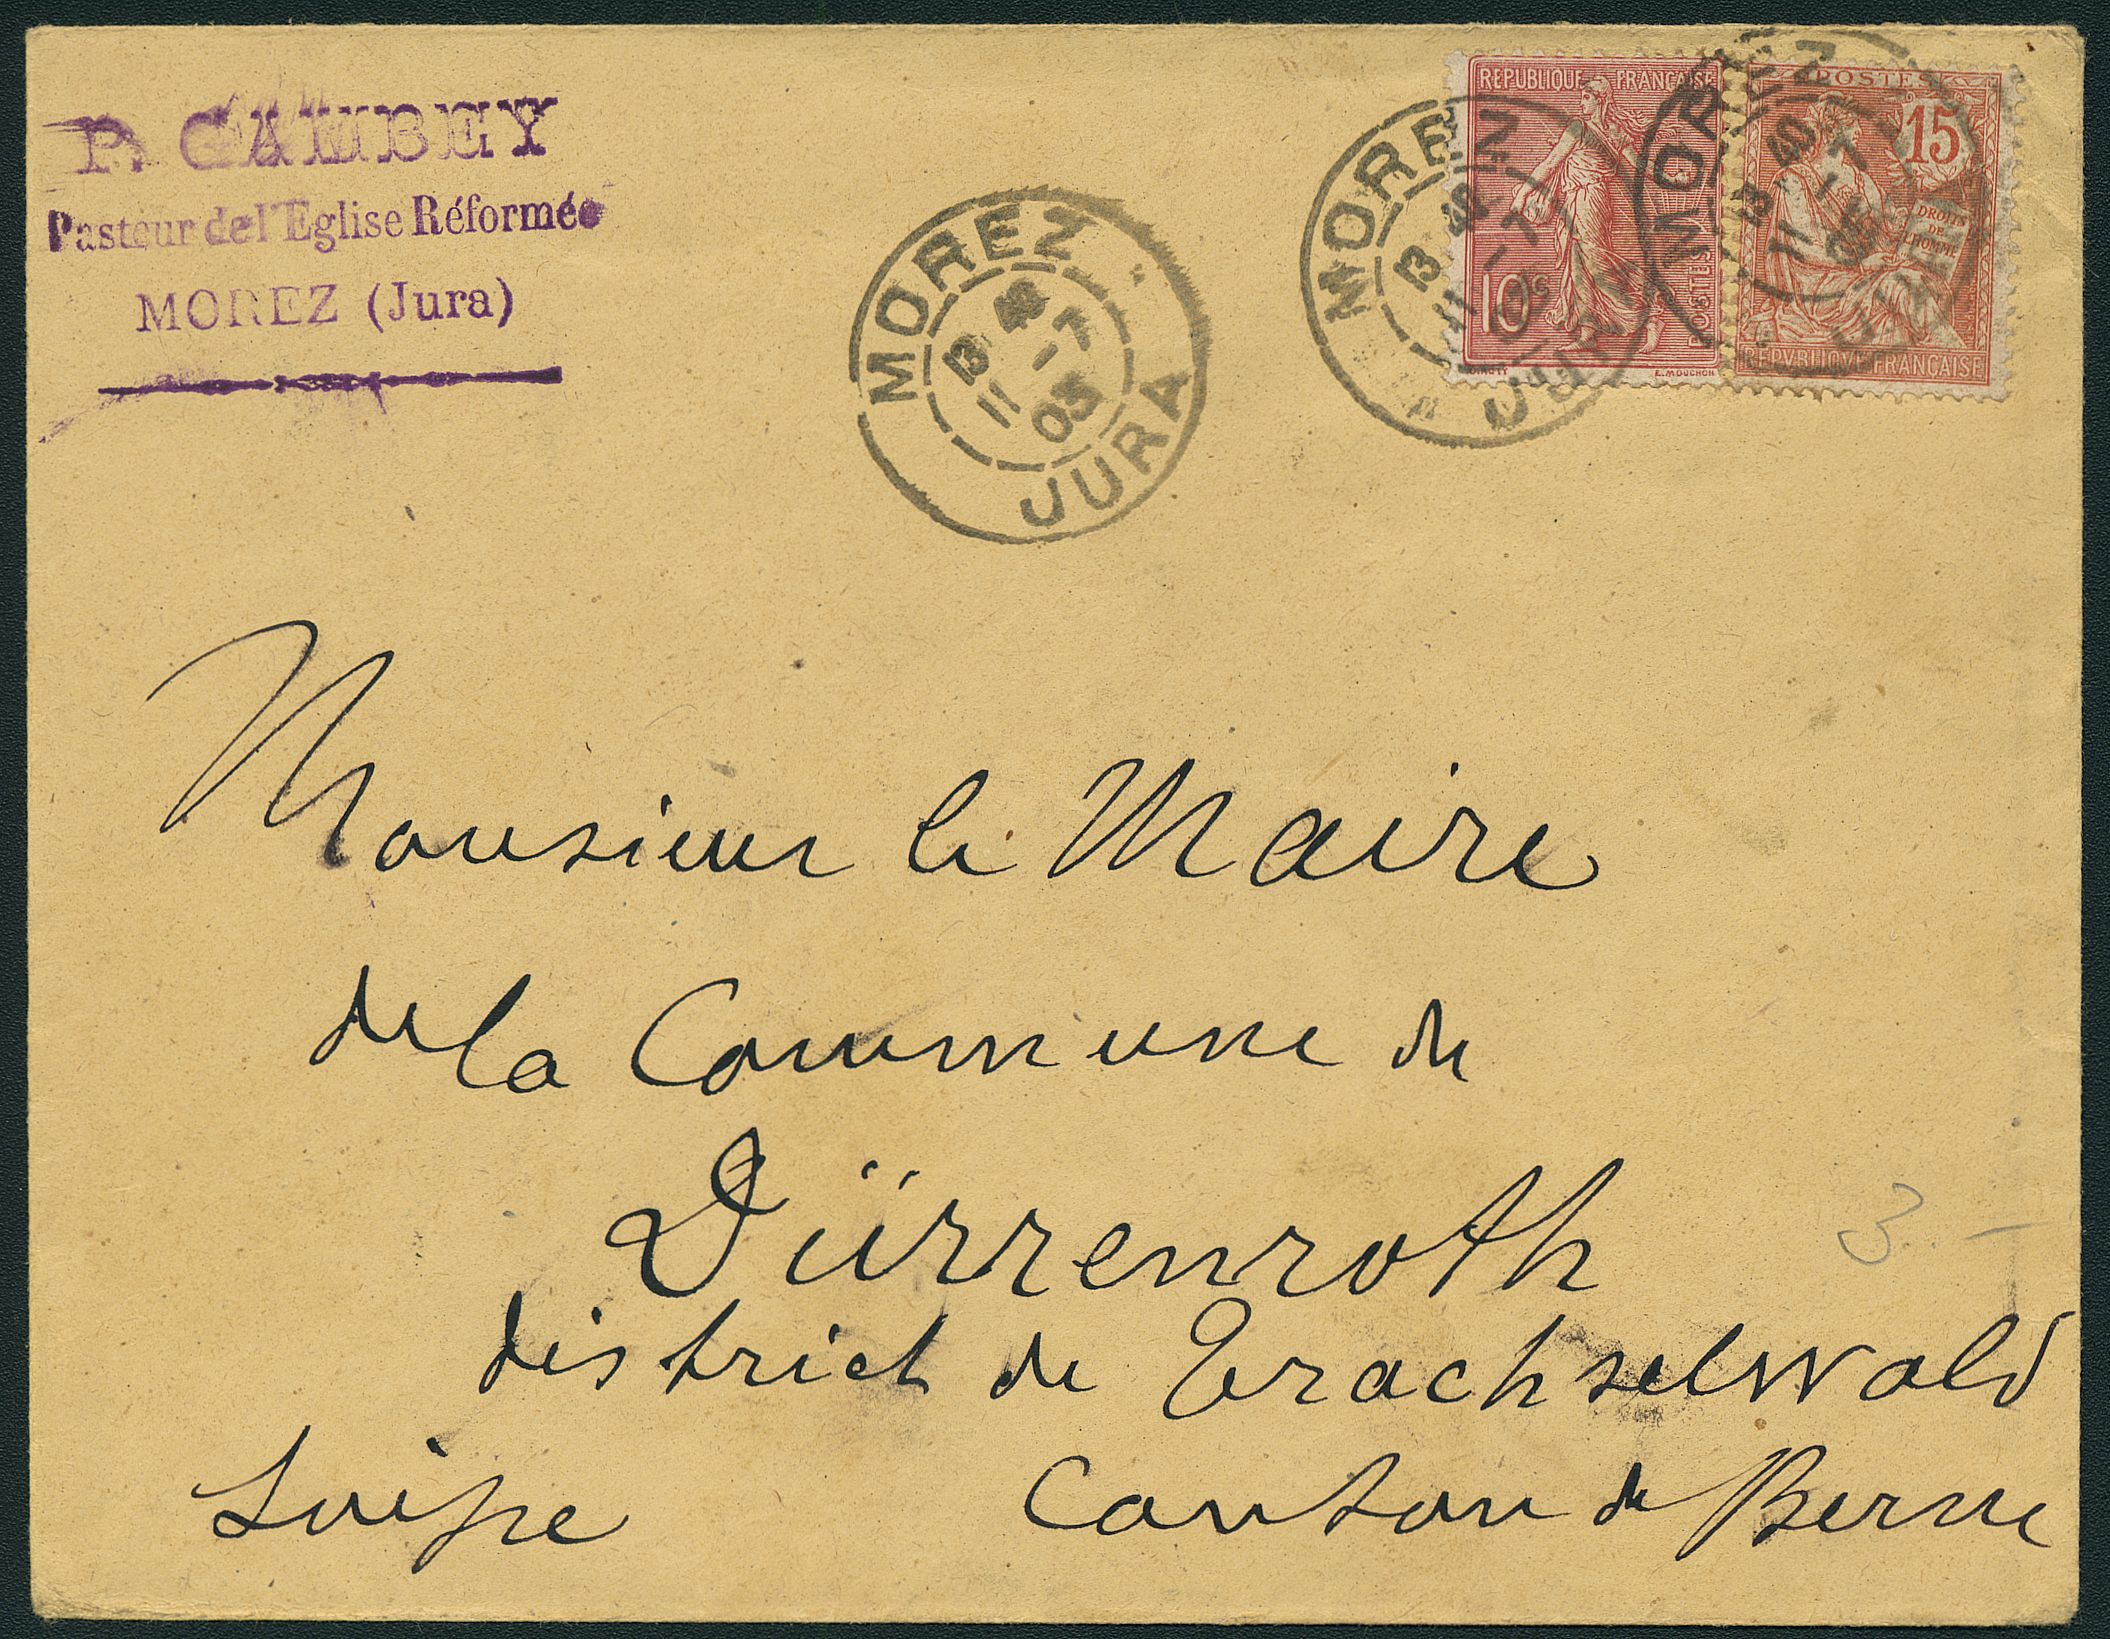 P. CAMBEY
Pasteur de l'Eglise Réformée
MOREZ (Jura)
MOREZ
13 40
11 - 7
05
JURA
MOREZ
13 40
11 - 7
JURA
REPUBLIQUE FRANÇAISE
10 cs
POSTES
E. MOUCHON
MOREZ
13 40
11 - 7
05
POSTES
15
DROITS
DE
L'HOMME
REPVBLIQVE FRANÇAISE
Monsieur le Maire
de la Commune de
Dürrenroth
district de Trachselwald
Suisse Canton de Berne
3.-